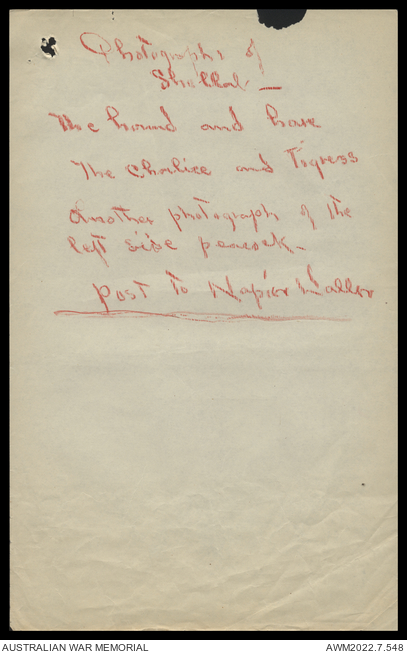 Photographs of
Shellal —
The hound and hare
The Chalice and Tigress
Another photograph of the
left side peacock —
Post to Napier Waller
AUSTRALIAN WAR MEMORIAL
AWM2022.7.548